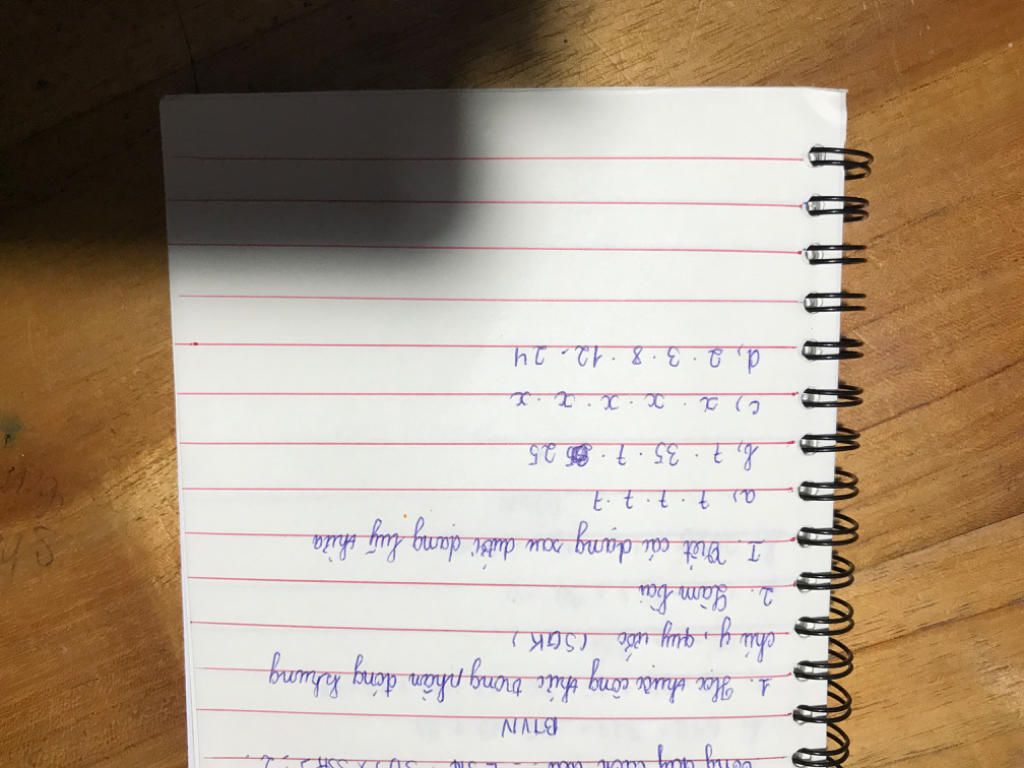 BTVN
1. Học thuộc công thức trong phần đóng khung
chú ý, quy ước (SGK)
2. Làm bài
I. Viết cái dạng sau dưới dạng luỹ thừa
a, 7 . 7 . 7 . 7
b, 7 . 35 . 7 . 25
c, x . x . x . x . x
d, 2 . 3 . 8 . 12 . 24